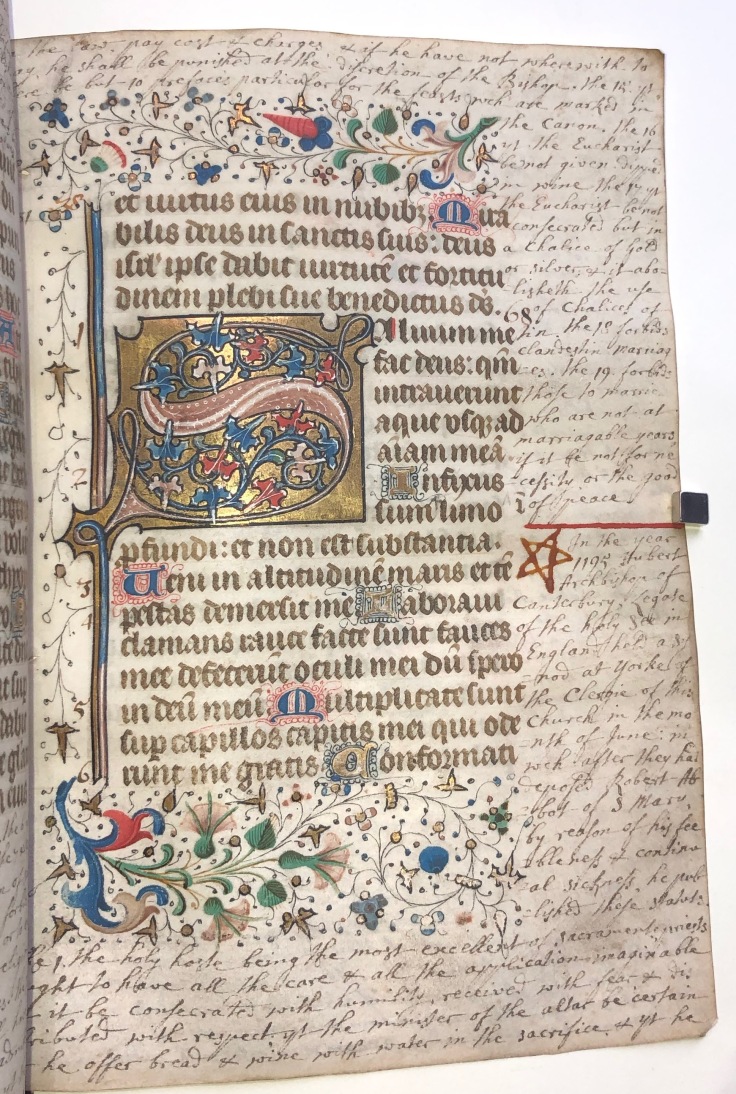 the law. pay cost & charges & if he have not wherewith to
pay, he shall be punished at the discretion of the Bishop. the 15. yt
be but 10 prefaces particular for the feasts wch are marked in
the Canon. the 16
yt the Eucharist
be not given dippe
in wine the 17 yt
the Eucharist be not
consecrated but in
a Chalice of Gold
or silver, & it abo-
lisheth the use
of Chalices of
tin. the 18 forbids
clandestin marriag
es. the 19. forbids
those to marrie
who are not at
marriagable years
if it be not for ne
cessity or the good
of peace.
In the year
1195 Hubert
Archbishop of
Canterbury, Legate
of the holy See in
England held a Sy
nod at Yorke of
the Clergie of this
Church in the mo
nth of June: in
wch after they had
deposed Robert Ab
bot of S Mary,
by reason of his fee
bleness & continu
al sickness, he pub
lished these statuts
et uirtus eius in nubibȝ Mira
bilis deus in sanctis suis: deus
isrl' ipse dabit uirtutē et fortitu
dinem plebi sue benedictus dš.
68
Saluum me
fac deus: qm̄
intrauerunt
aque vsqȝ ad
aīam meā
Infixus
sum limo
1
2
3
4
5
pfundi: et non est substantia.
Ueni in altitudinē maris et tē
pestas demersit me Laboraui
clamans rauce facte sunt fauces
mee defecerūt oculi mei dū spero
in deū meū Multiplicate sunt
sup capillos capitis mei qui ode
runt me gratis Confortati
1. the holy hoste being the most excellent of sacraments priests
ought to have all the care & all the application imaginable
it be consecrated with humility, received with fear & dis
tributed with respect. yt the minister of the altar be certain
he offer bread & wine with water in the sacrifice. & yt he